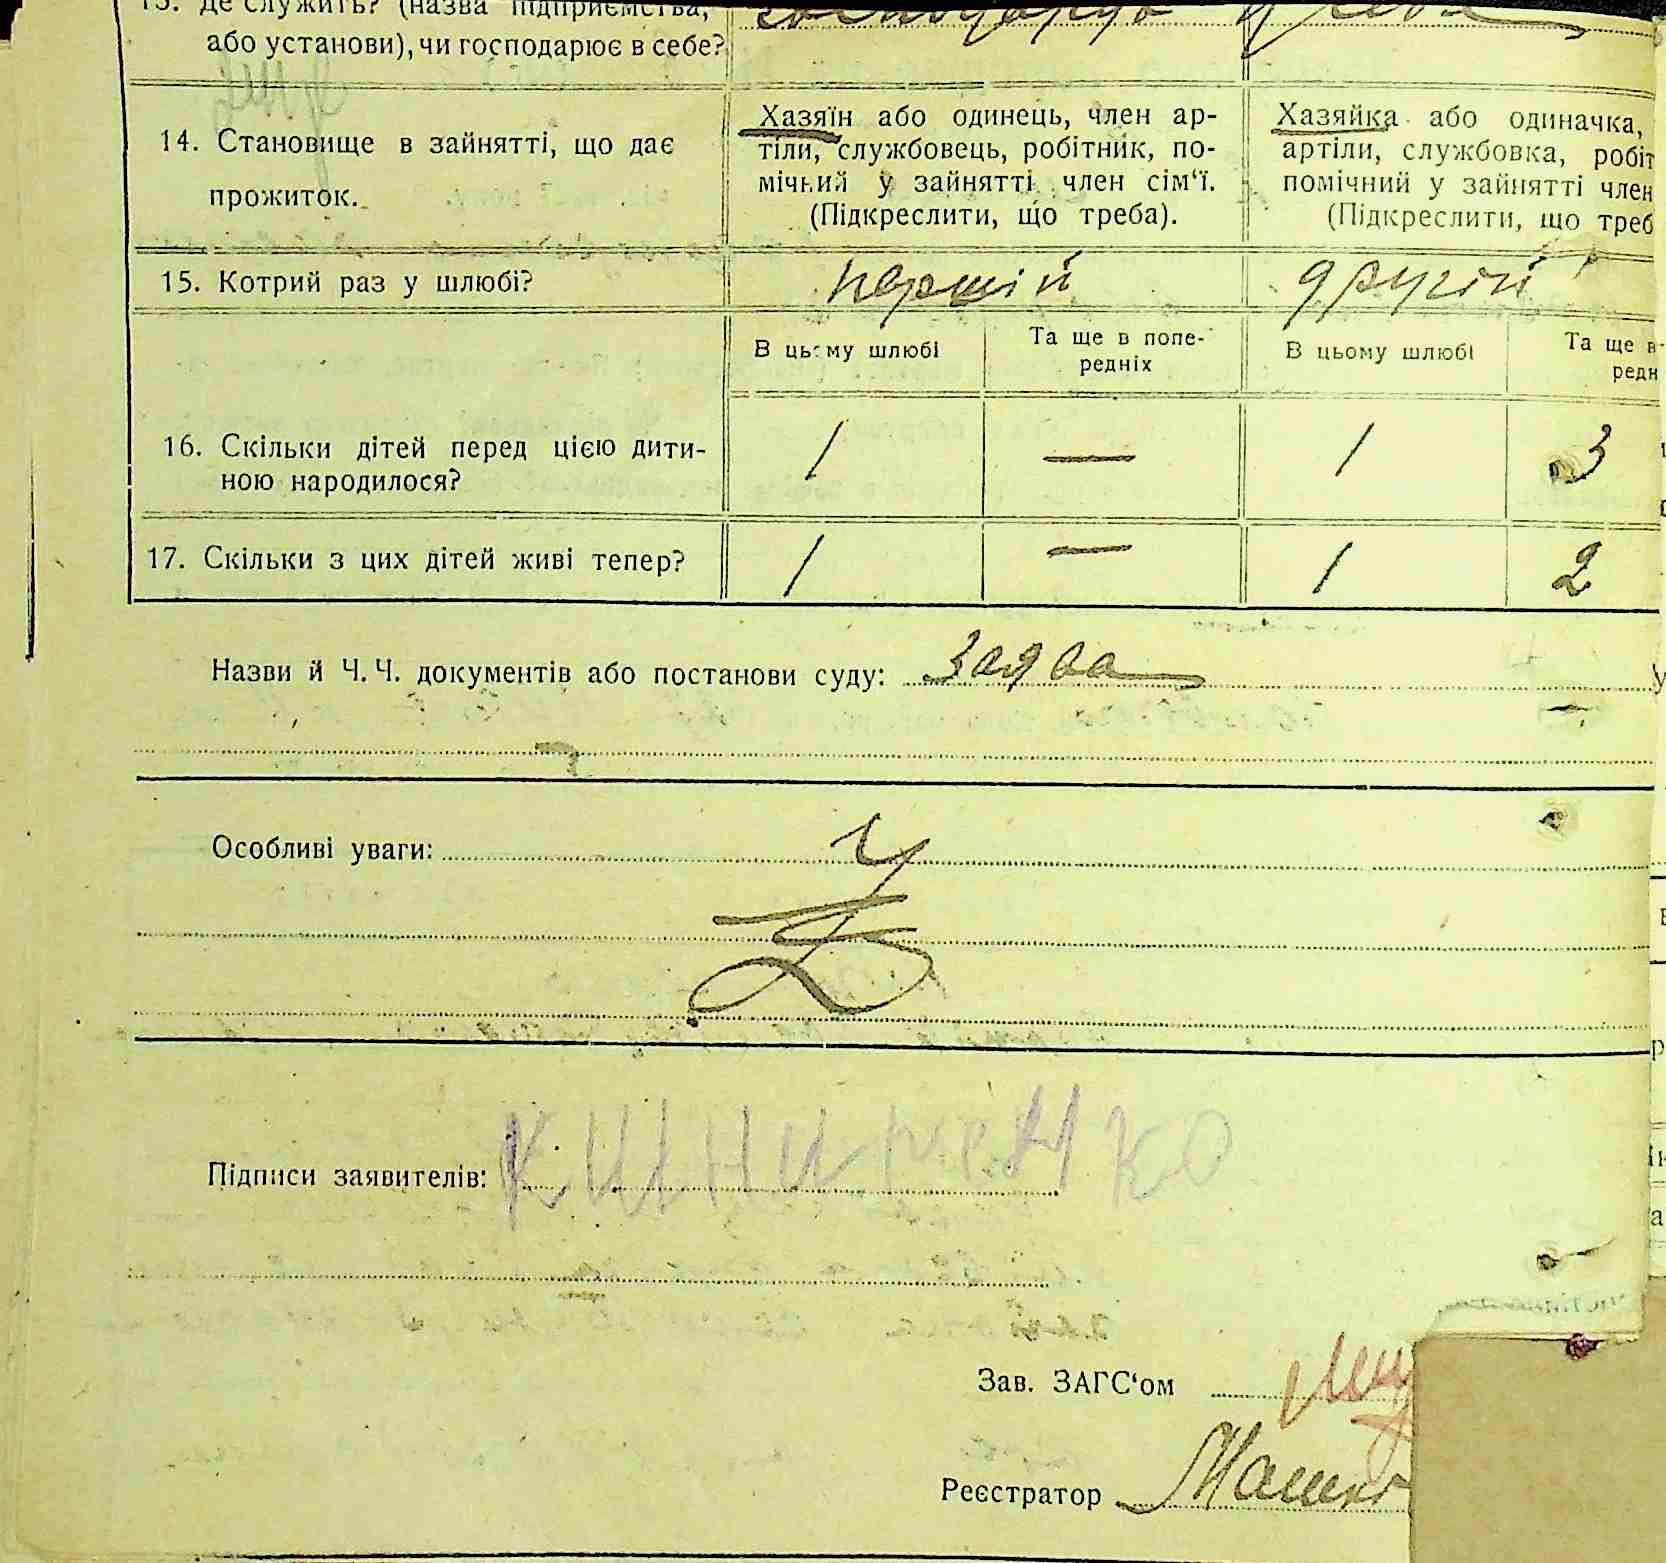 13. Де служить? (назва підприємства,
або установи), чи господарює в себе?
14. Становище в зайнятті, що дає
прожиток.
Хазяїн або одинець, член ар-
тіли, службовець, робітник, по-
мічний у зайнятті член сім‘ї.
(Підкреслити, що треба).
Хазяйка або одиначка,
артіли, службовка, робіт
помічний у зайнятті член
(Підкреслити, що треб
15. Котрий раз у шлюбі?
першій
другій
В цьому шлюбі
Та ще в попе-
редніх
В цьому шлюбі
Та ще в
редн
16. Скільки дітей перед цією дити-
ною народилося?
1 — 1 3
17. Скільки з цих дітей живі тепер?
1 — 1 2
Назви й Ч. Ч. документів або постанови суду: Заява
Особливі уваги:
Підписи заявителів:
Зав. ЗАГС‘ом
Реєстратор